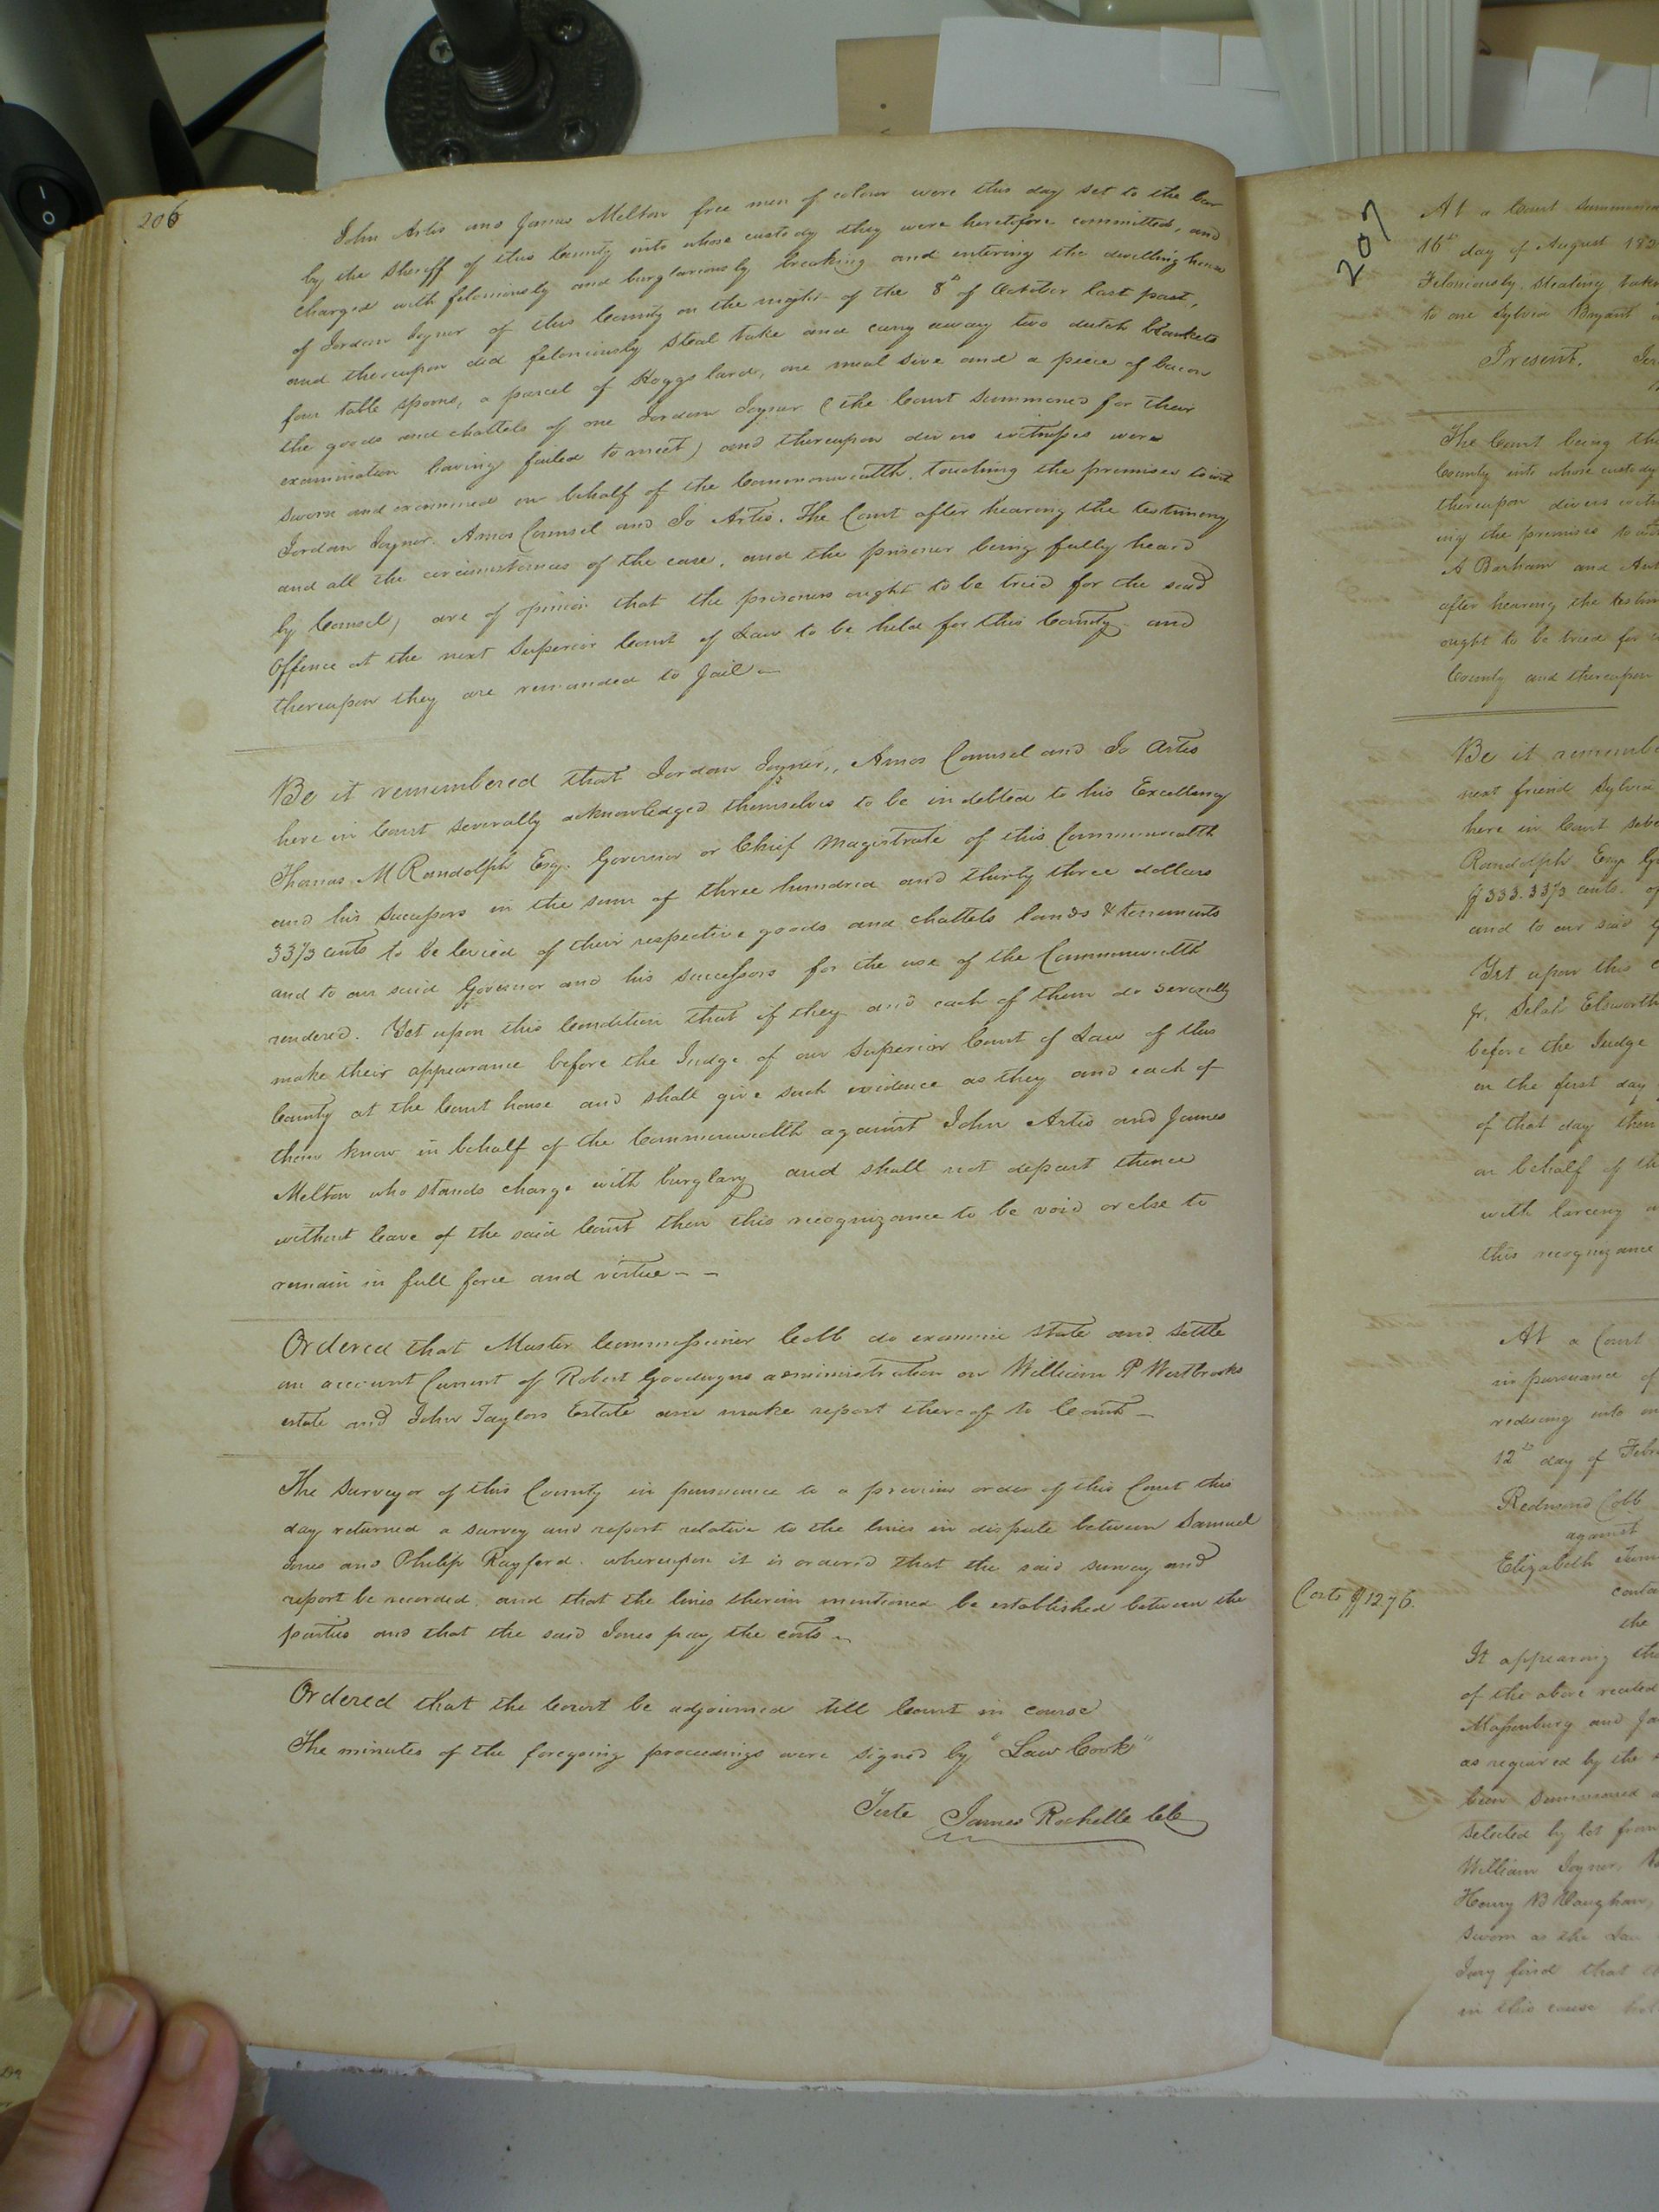 206
John Artis and James Melton free men of colour were this day set to the bar
by the sheriff of this County into whose custody they were heretofore committed, and
charged with feloniously and burglariously breaking and entering the dwelling house
of Jordan Joyner of this County on the night of the 8th of October last past,
and thereupon did feloniously steal take and carry away two dutch blankets
four table spoons, a parcel of Hoggs lard, one meal sive and a piece of bacon
the goods and chattels of one Jordan Joyner (the Court summoned for their
examination having failed to meet) and thereupon divers witnesses were
sworn and examined on behalf of the Commonwealth, touching the premises towit
Jordan Joyner. Amos Counsel and Jo Artis. The Court after hearing the testimony
and all the circumstances of the case, and the prisoner being fully heard
by Counsel, are of opinion that the prisoners ought to be tried for the said
Offence at the next Superior Court of Law to be held for this County and
thereupon they are remanded to Jail
Be it remembered that Jordan Joyner, Amos Counsel and Jo Artis
here in Court severally acknowledged themselves to be indebted to his Excellency
Thomas M Randolph Esq. Governor or Chief Magistrate of this Commonwealth
and his successors in the sum of three hundred and thirty three dollars
33 1/3 cents to be levied of their respective goods and chattels lands & tenements
and to our said Governor and his successors for the use of the Commonwealth
rendered. Yet upon this Condition that if they and each of them do severally
make their appearance before the Judge of our Superior Court of Law of this
County at the Court house and shall give such evidence as they and each of
them know in behalf of the Commonwealth against John Artis and James
Melton who stands charge with burglary and shall not depart thence
without leave of the said Court then this recognizance to be void or else to
remain in full force and virtue - -
Ordered that Master Commissioner Cobb do examine state and settle
an account Current of Robert Goodwyns administration on William P Westbrooks
estate and John Taylors Estate and make report thereof to Court
The Surveyor of this County in pursuance to a previous order of this Court this
day returned a survey and report relative to the lines in dispute between Samuel
Jones and Philip Rayford. whereupon it is ordered that the said survey and
report be recorded, and that the lines therein mentioned be established between the
parties and that the said Jones pay the costs
Ordered that the Court be adjourned till Court in course
The minutes of the foregoing proceedings were signed by "Law Cook"
Teste James Rochelle Clk
207
At a Court summoned
16th day of August 182
Feloniously stealing
to one Sylvia Bryant
Present,
The Court being
County into whose custody
thereupon divers
ing the premises towit
A Barham and
after hearing the
ought to be tried for
County and thereupon
Be it
next friend Sylvia
here in Court
Randolph Esqr
$333.33 1/3 cents.
and to our said
Yet upon this
Jr. Selah Elsworth
before the Judge
on the first day
of that day then
on behalf of
with larceny
this recognizance
At a Court
in pursuance of
reducing into
12th day of
Redmond Cobb
against
Elizabeth
Costs $12.76.
the
It appearing
of the above recited
Massenburg and
as required by the
been summoned
selected by lot from
William Joyner,
Henry B Vaughan,
sworn as the
Jury find that
in this cause